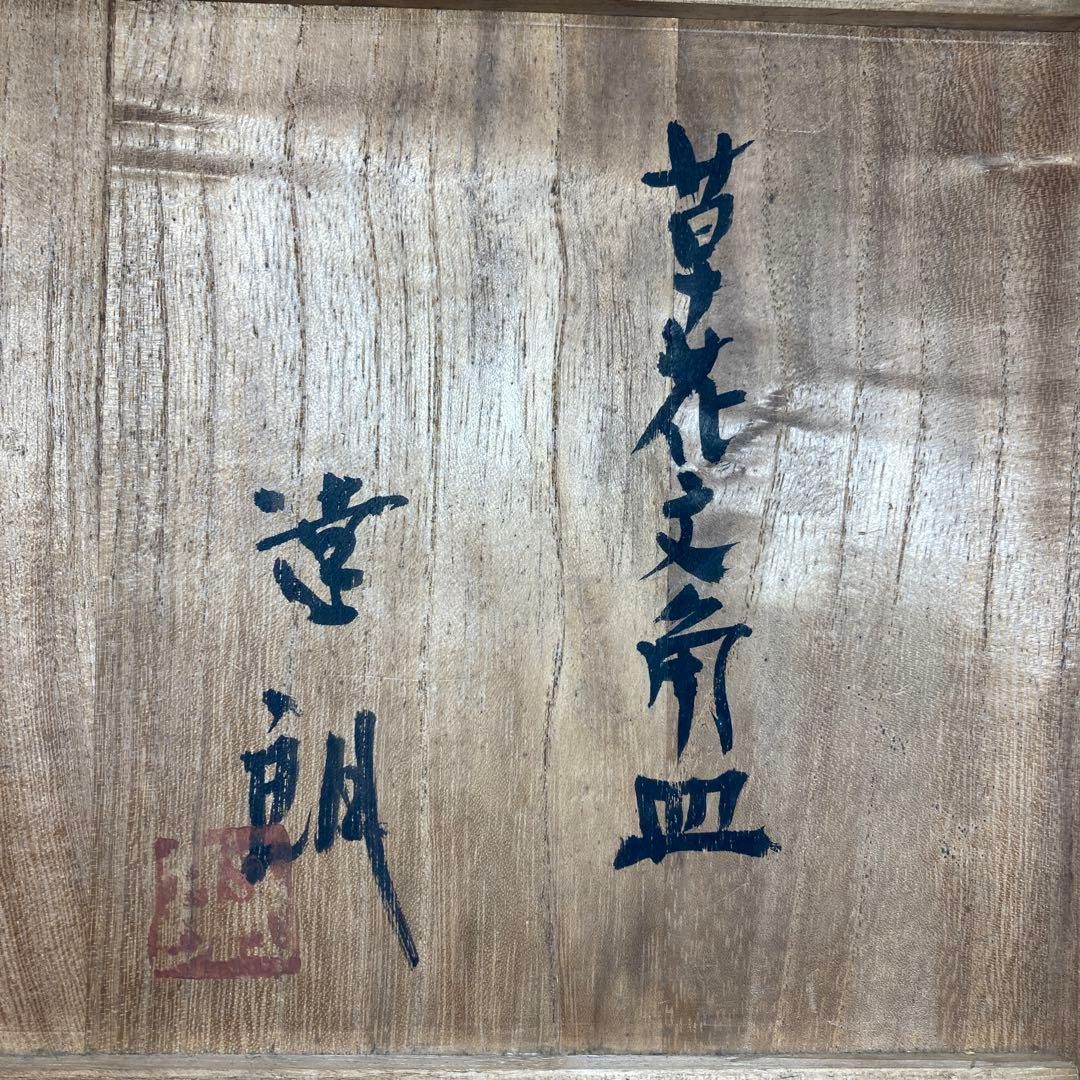 草花文角皿
朗